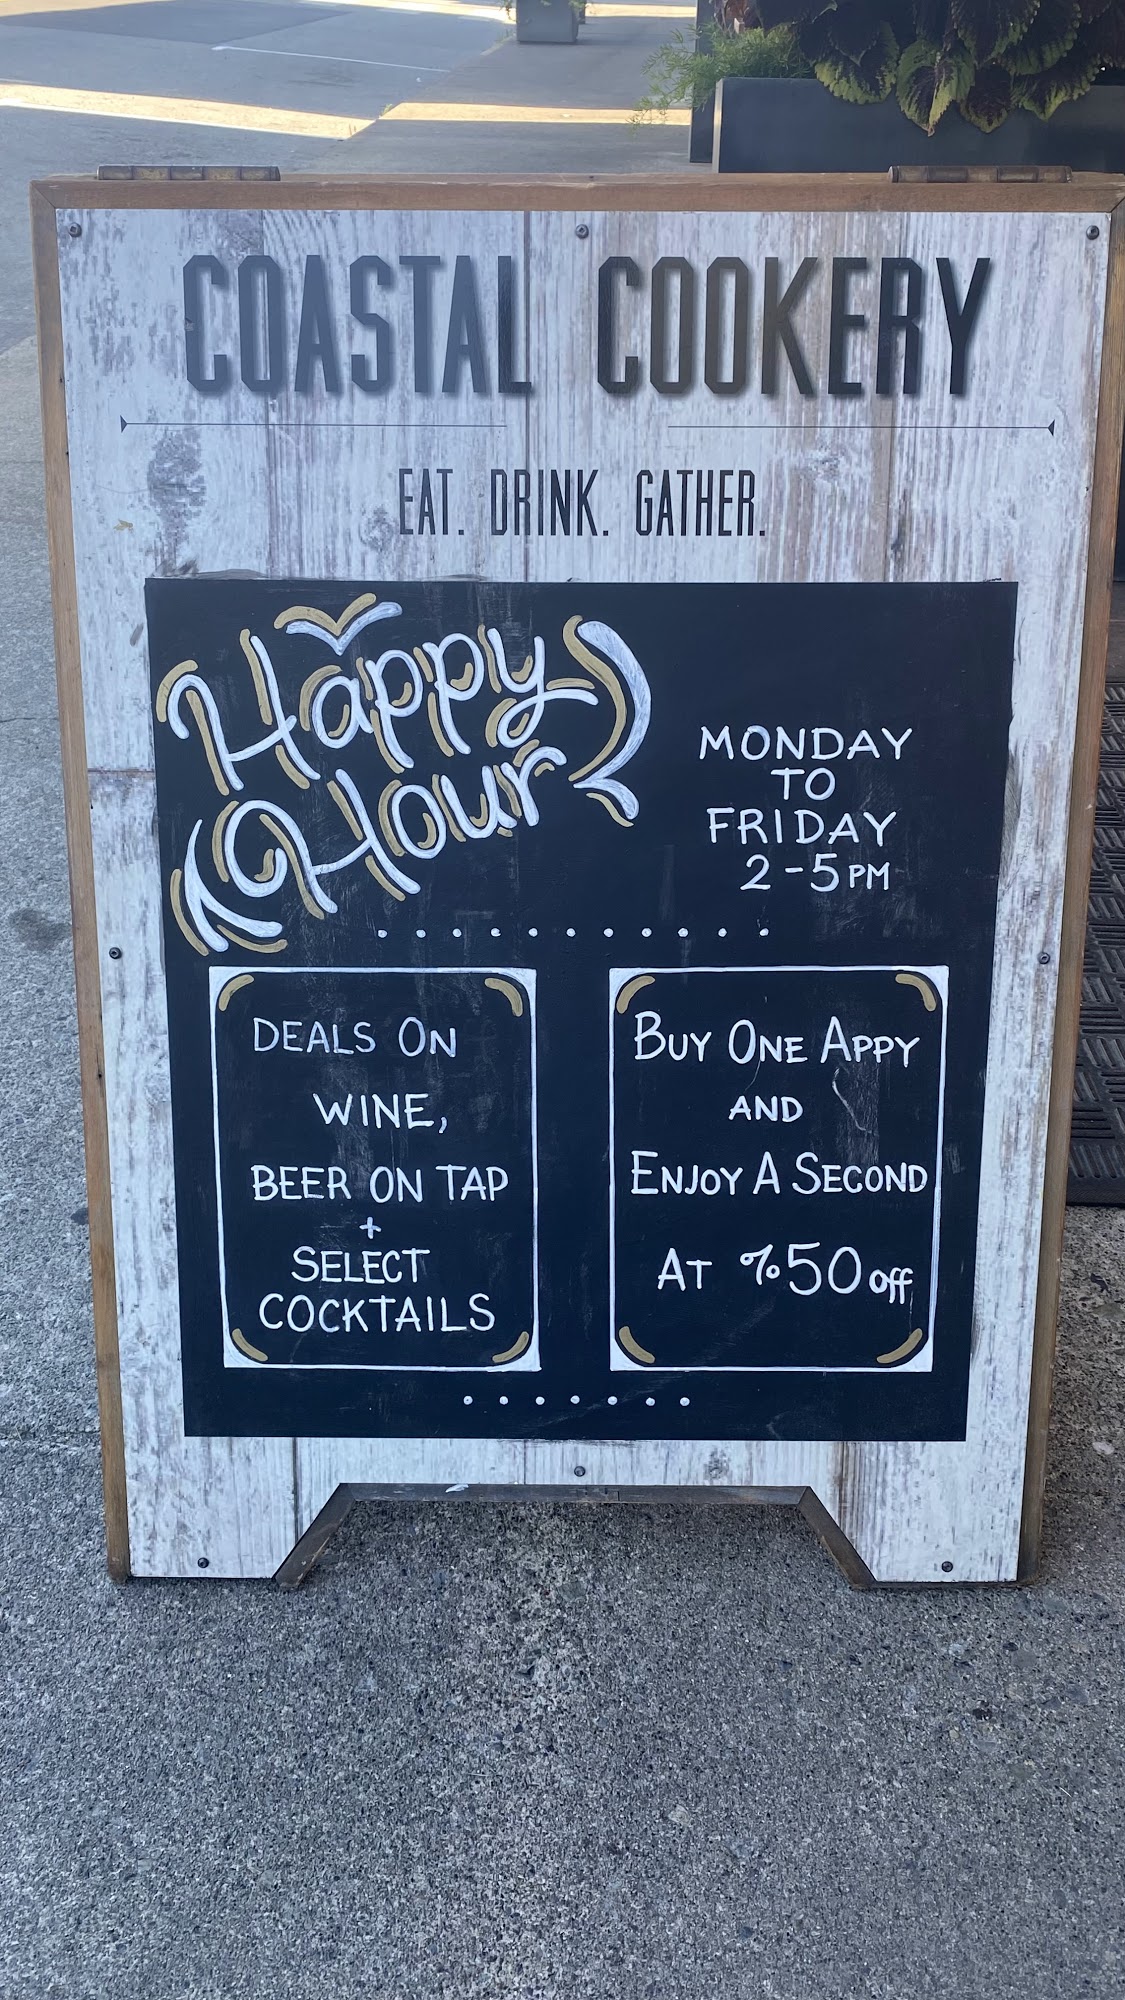 COASTAL COOKERY
EAT. DRINK. GATHER.
Happy
Hour
MONDAY
TO
FRIDAY
2-5PM
DEALS ON
WINE,
BEER ON TAP
+
SELECT
COCKTAILS
BUY ONE APPY
AND
ENJOY A SECOND
AT %50 off